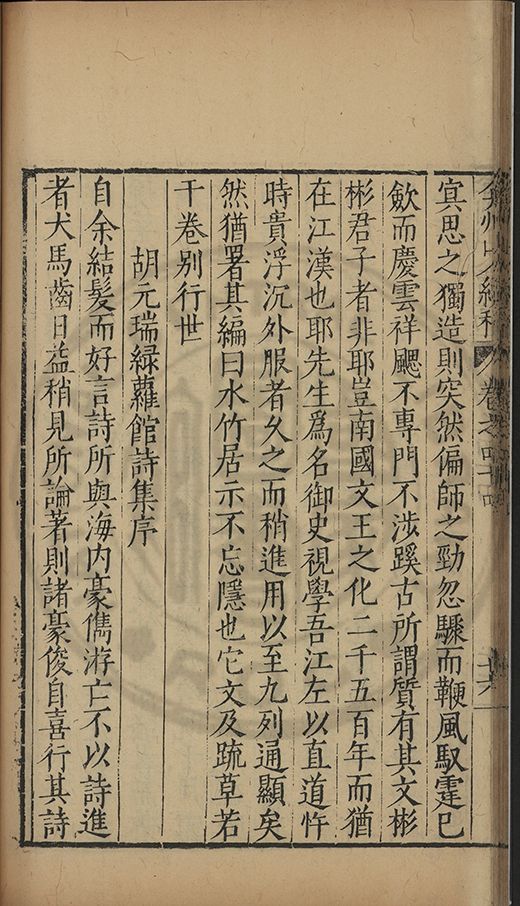 弇州山人續稿 卷之四十四
冥思之獨造則突然偏師之勁忽驟而鞭風馭霆已
歛而慶雲祥颸不專門不涉蹊古所謂質有其文彬
彬君子者非耶豈南國文王之化二千五百年而猶
在江漢也耶先生爲名御史視學吾江左以直道忤
時貴浮沉外服者久之而稍進用以至九列通顯矣
然猶署其編曰水竹居示不忘隱也它文及疏草若
干卷別行世
胡元瑞綠蘿館詩集序
自余結髮而好言詩所與海內豪儁游亡不以詩進
者犬馬齒日益稍見所論著則諸豪俊自喜行其詩